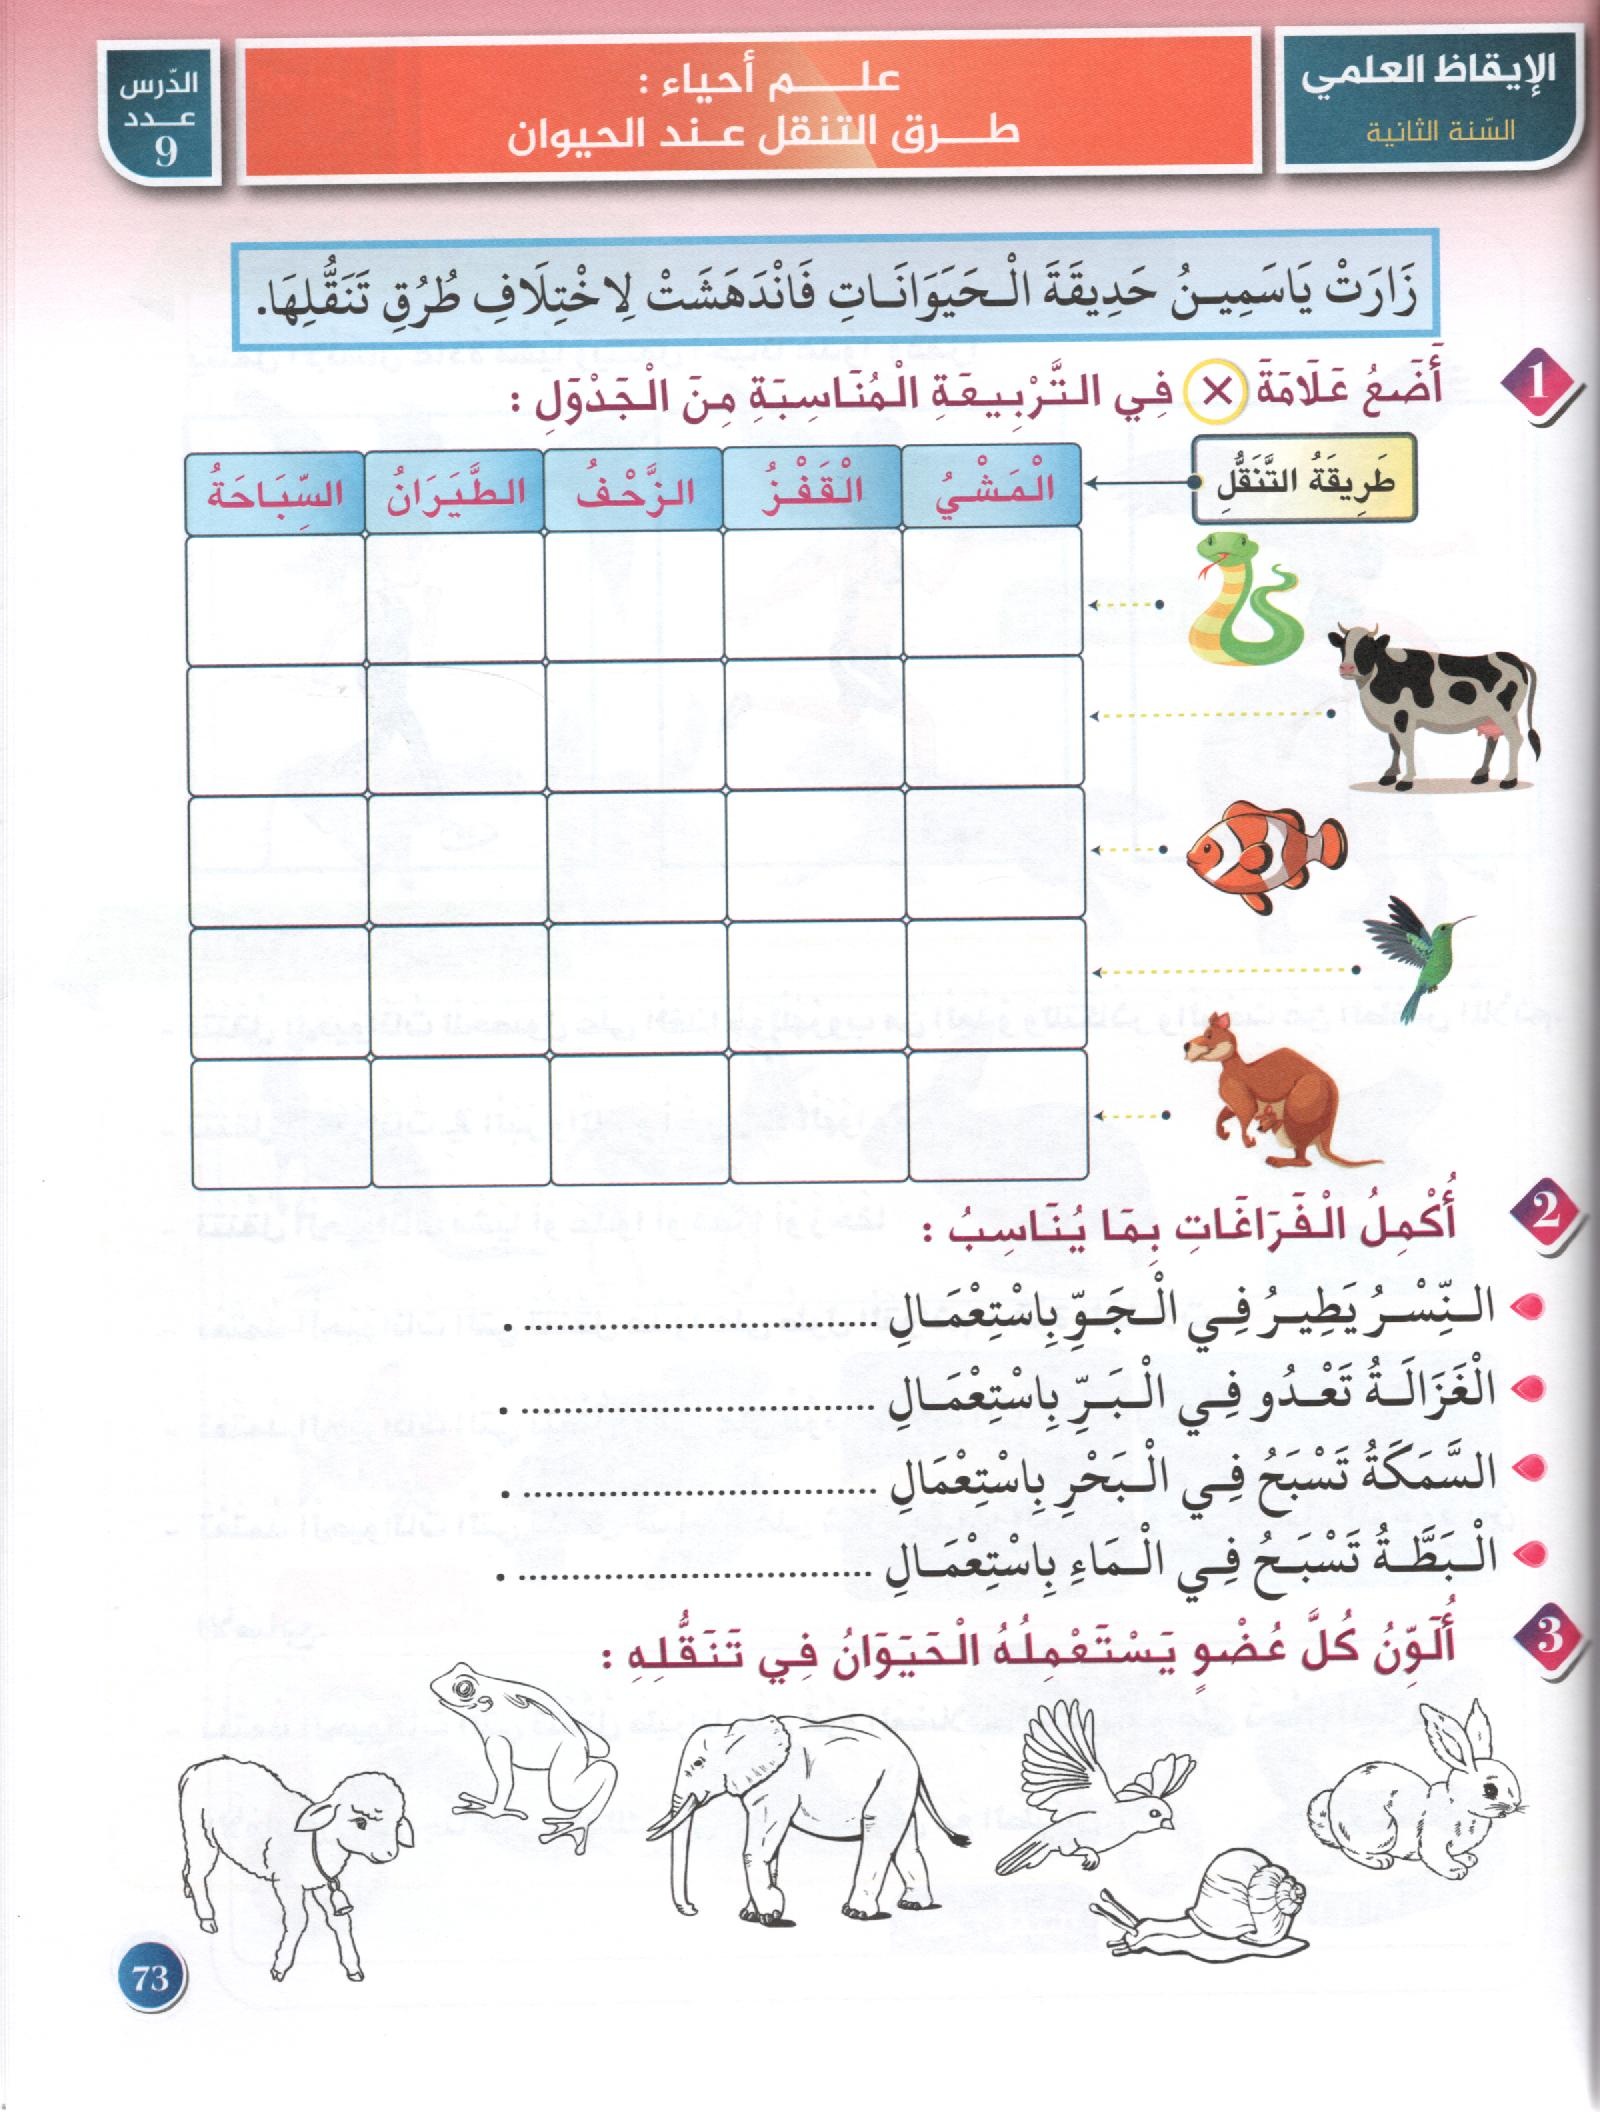 الإيقاظ العلمي
السّنة الثانية
علـــــم أحياء :
طـــرق التنقل عـند الحيوان
الدّرس
عــدد
9
زَارَتْ يَاسَمِيـنُ حَدِيقَةَ الْـحَيَوَانَـاتِ فَانْدَهَشَتْ لِاخْتِلَافِ طُرُقِ تَنَقُّلِهَا.
1 أَضَعُ عَلَامَةَ × فِي التَّرْبِيعَةِ الْمُنَاسِبَةِ مِنَ الْجَدْوَلِ :
طَرِيقَةُ التَّنَقُّلِ
الْمَشْيُ الْقَفْزُ الزَّحْفُ الطَّيَرَانُ السِّبَاحَةُ
2 أُكْمِلُ الْفَرَاغَاتِ بِمَا يُنَاسِبُ :
النِّسْرُ يَطِيرُ فِي الْجَوِّ بِاسْتِعْمَالِ .................................... .
الْغَزَالَةُ تَعْدُو فِي الْبَرِّ بِاسْتِعْمَالِ .................................... .
السَّمَكَةُ تَسْبَحُ فِي الْبَحْرِ بِاسْتِعْمَالِ .................................... .
الْبَطَّةُ تَسْبَحُ فِي الْمَاءِ بِاسْتِعْمَالِ .................................... .
3 أُلَوِّنُ كُلَّ عُضْوٍ يَسْتَعْمِلُهُ الْحَيَوَانُ فِي تَنَقُّلِهِ :
73